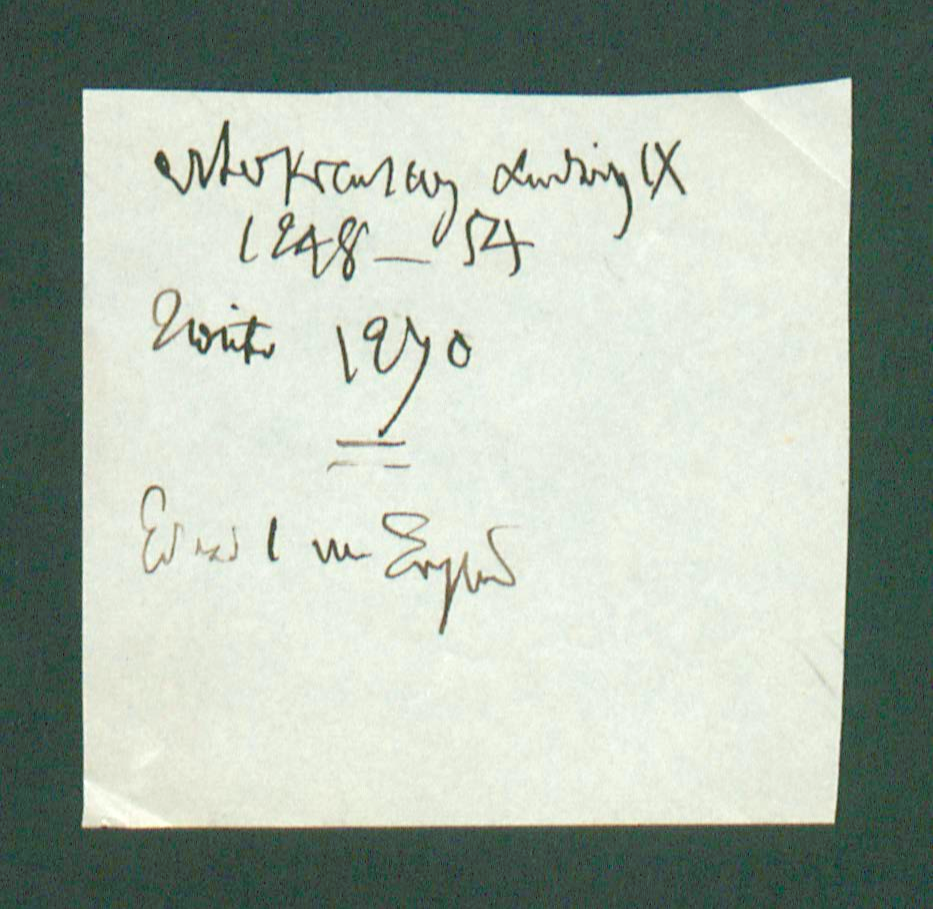 erster Kreuzzug Ludwig IX
1248 – 54
Zweiter 1270
Eduard I von England